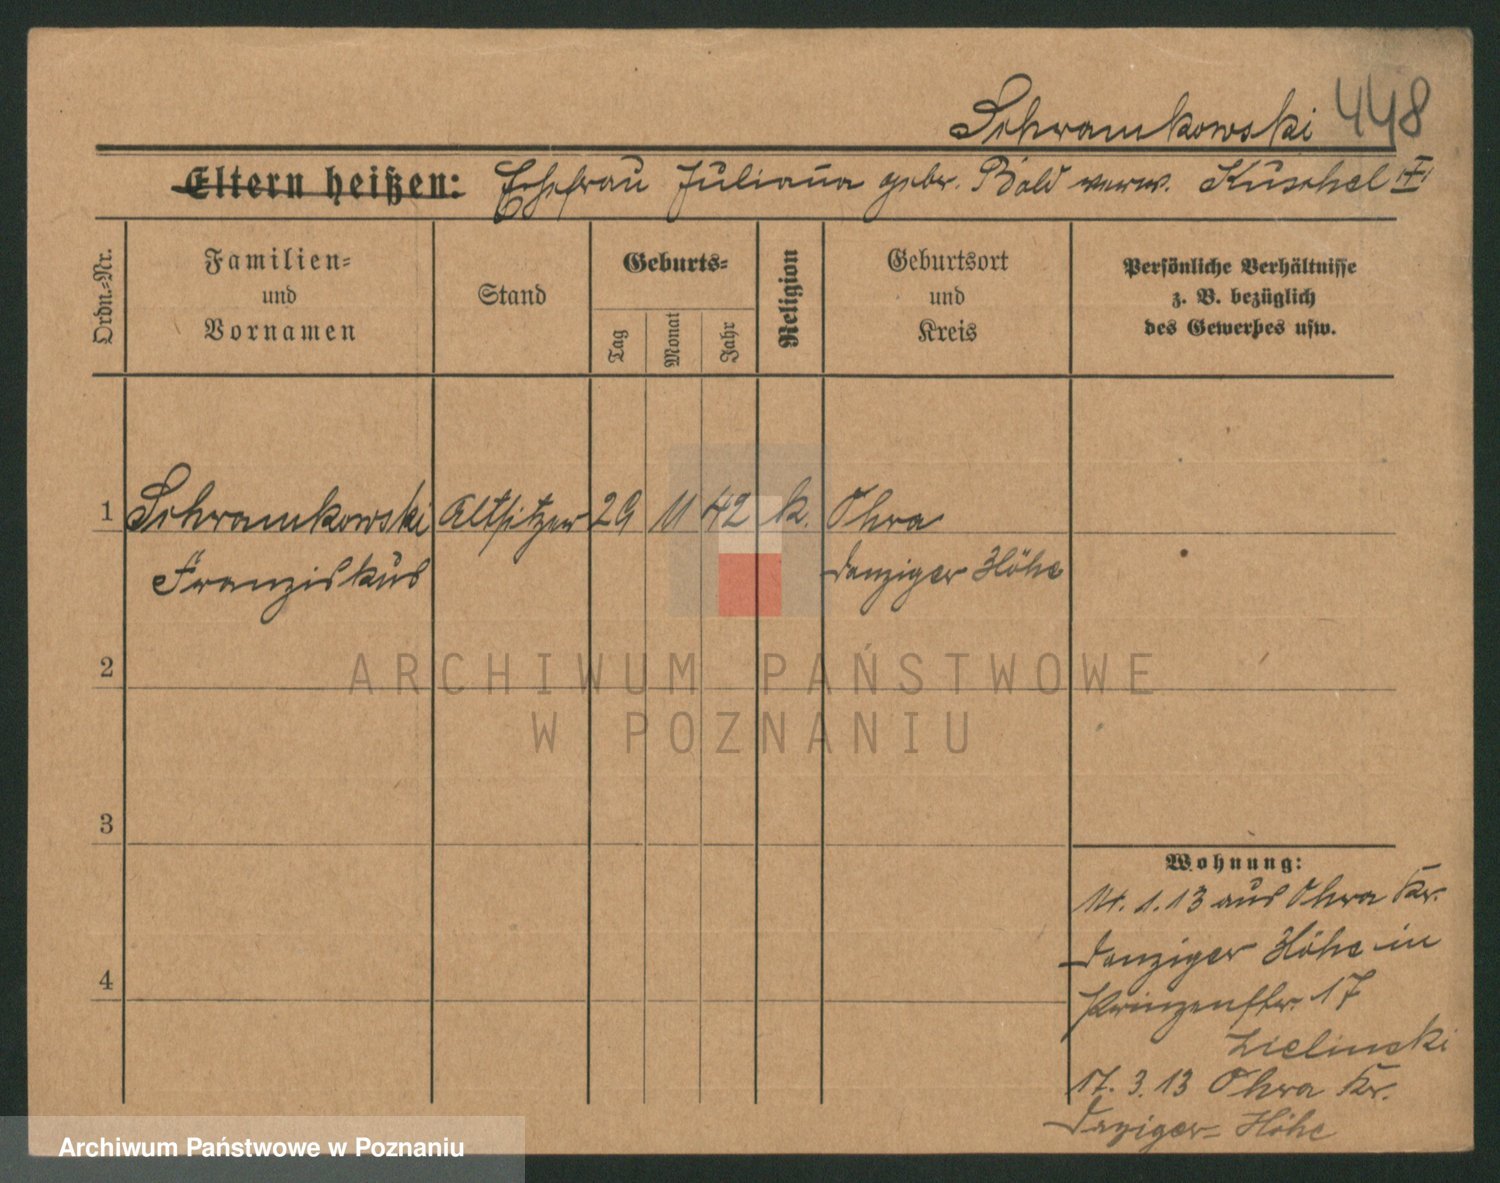 Schramkowski 448
Eltern heißen: Ehefrau Juliana gebr. Bald verw. Kuschel
Ordn.-Nr.
Familien-
und
Vornamen
Stand
Geburts-
Tag
Monat
Jahr
Religion
Geburtsort
und
Kreis
Persönliche Verhältnisse
z. B. bezüglich
des Gewerbes usw.
1 Schramkowski Altsitzer 29 11 42 k. Ohra
Franziskus Danziger Höhe
2
ARCHIWUM PAŃSTWOWE
W POZNANIU
3
Wohnung:
1.13 aus Ohra Kr.
4
Danziger Höhe in
Prinzenstr. 17
Zielinski
17. 3. 13 Ohra Kr.
Danziger-Höhe
Archiwum Państwowe w Poznaniu